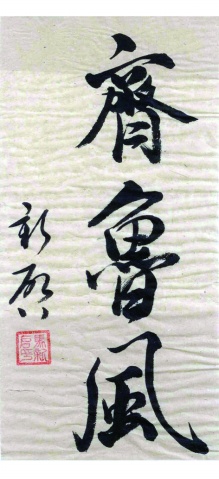 齊魯風
新